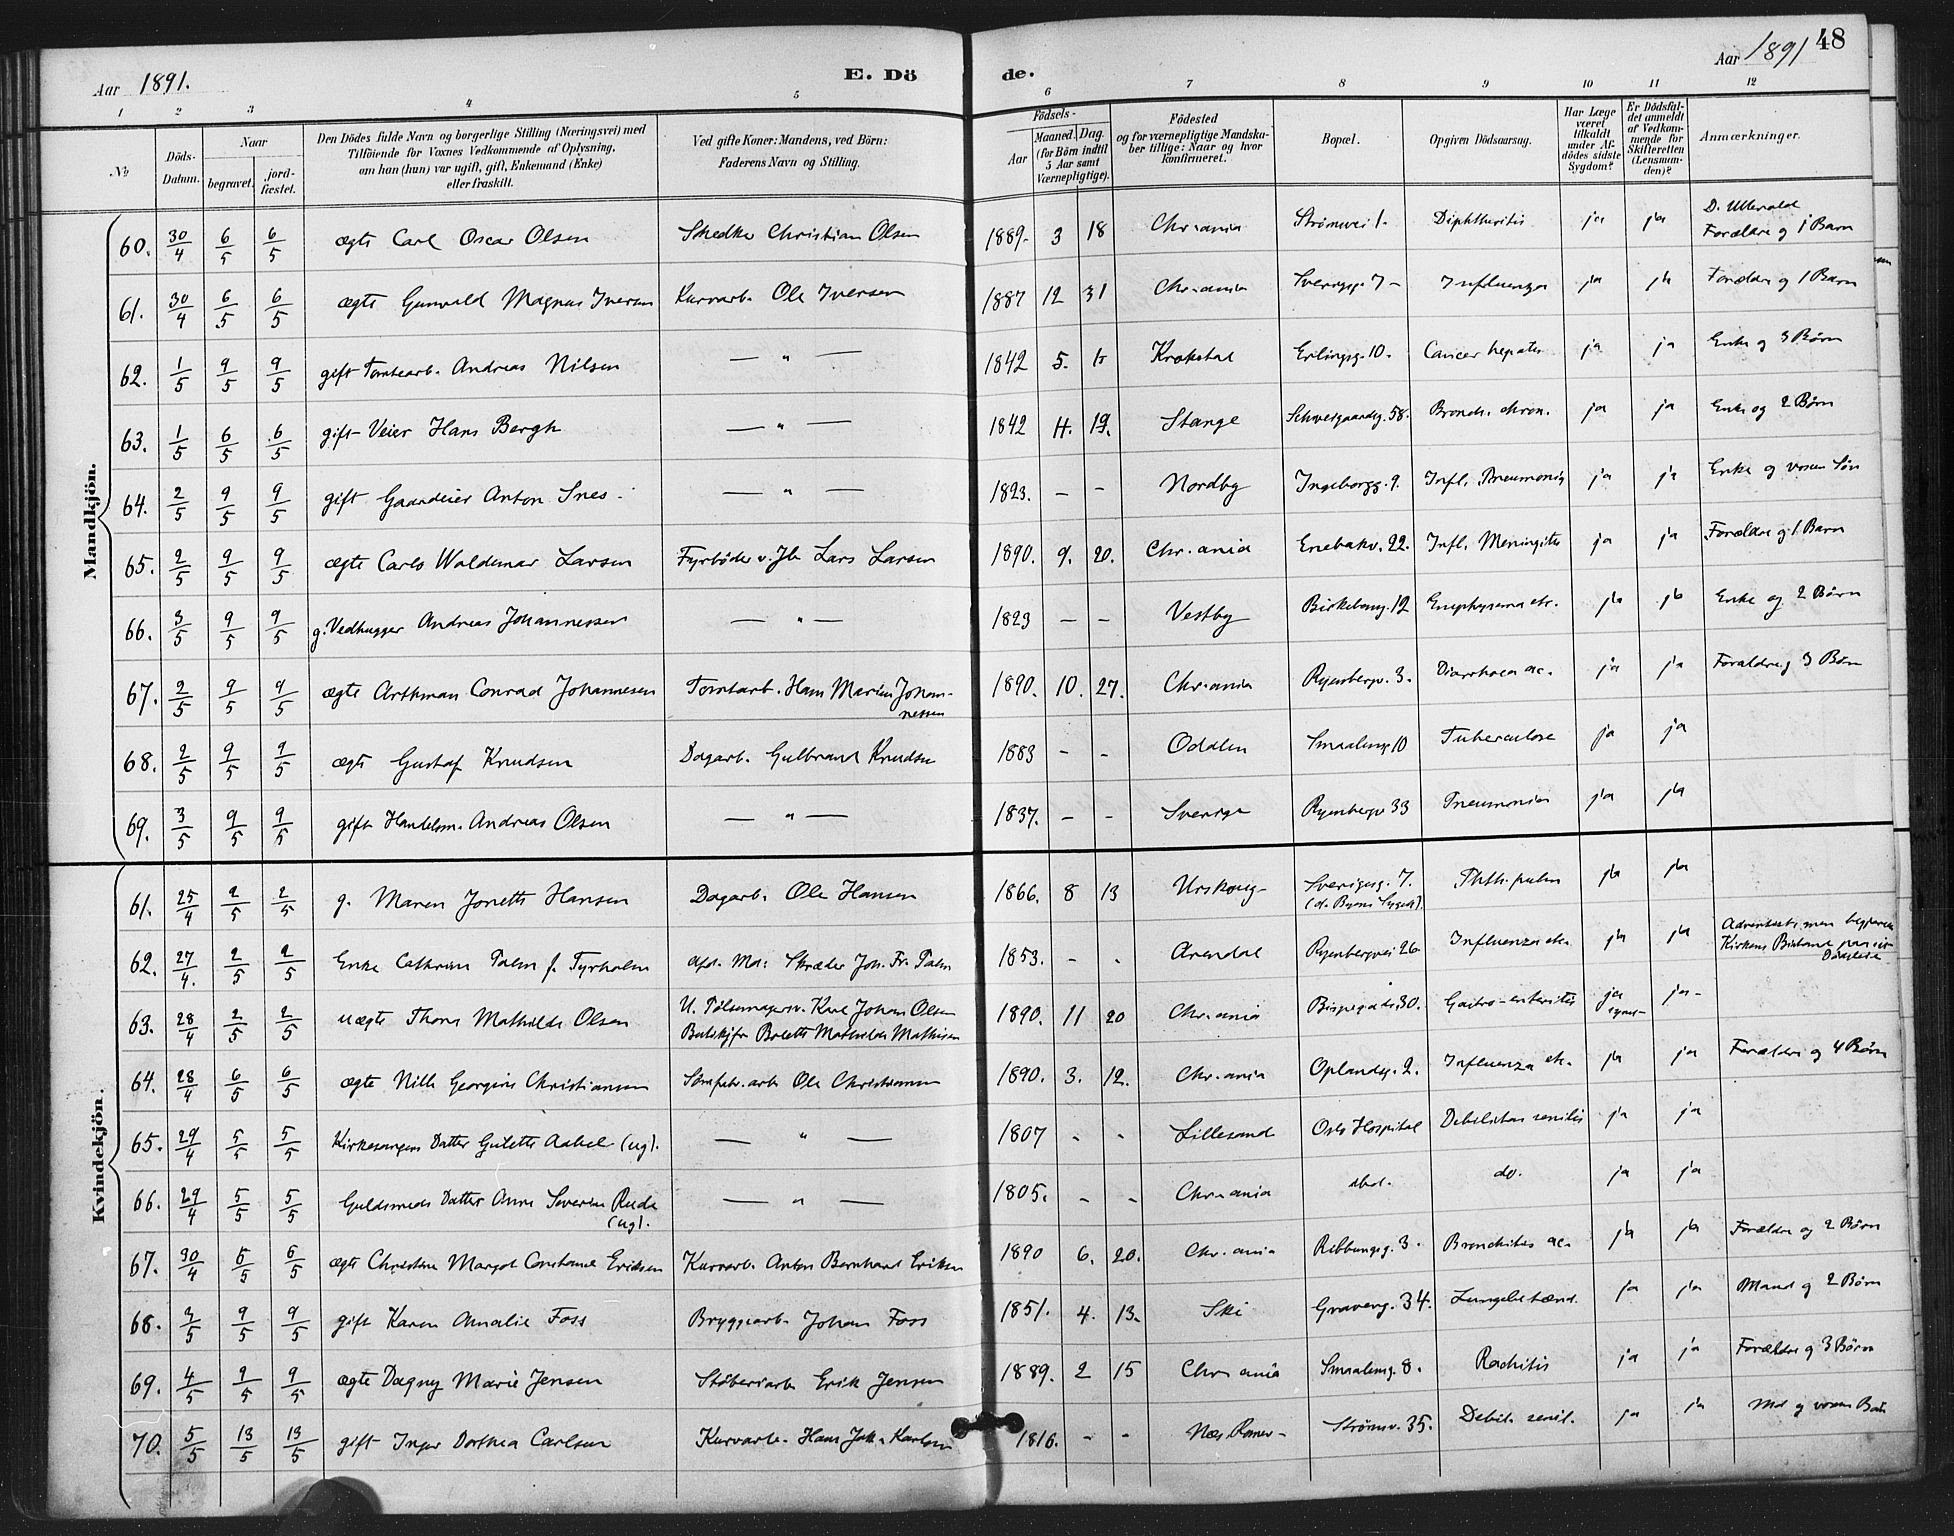 Aar 1891.
E. Dö
de.
Aar 1891
48
1 2 3 4 5 6 7 8 9 10 11 12
No
Döds-
Datum.
Naar
begravet.
jord-
fæstet.
Den Dödes fulde Navn og borgerlige Stilling (Næringsvei) med
Tilföiende for Voxnes Vedkommende af Oplysning,
om han (hun) var ugift, gift, Enkemand (Enke)
eller fraskilt.
Ved gifte Koner: Mandens, ved Börn:
Faderens Navn og Stilling.
Födsels-
Aar
Maaned. Dag.
(for Börn indtil
5 Aar samt
Værnepligtige).
Födested
og for værnepligtige Mandska-
ber tillige: Naar og hvor
konfirmeret.
Bopæl.
Opgiven Dödsaarsag.
Har Læge
været
tilkaldt
under Af-
dödes sidste
Sygdom?
Er Dödsfal-
det anmeldt
af Vedkom-
mende for
Skifteretten
(Lensman-
den)?
Anmærkninger.
Mandkjön.
60. 30/4 6/5 6/5 ægte Carl Oscar Olsen Smedker Christian Olsen 1889- 3 18 Chr.ania Strömsvei 1. Diphtheritis ja ja D. Ullevold
Forældre og 1 Barn
61. 30/4 6/5 6/5 ægte Gunvald Magnus Iversen Kurvarb. Ole Iversen 1887 12 31 Chr.ania Sverigsg. 7- Influenza ja ja Forældre og 1 Barn
62. 1/5 9/5 9/5 gift Tomtearb. Andreas Nilsen — " — 1842 5. Krokstad Erlingsg. 10. Cancer hepatis ja ja Enke og 3 Börn
63. 1/5 6/5 6/5 gift Veier Hans Bergh — " — 1842 4. 19. Stange Schweigaardsg. 58. Bronch. chron. ja ja Enke og 2 Börn
64. 2/5 9/5 9/5 gift Gaardeier Anton Snes. — " — 1823. - - Nordby Ingeborgg. 9. Infl. Pneumonia ja ja Enke og voxen Sön
65. 2/5 9/5 9/5 ægte Carlo Waldemar Larsen Fyrböder v. Jb. Lars Larsen 1890. 9. 20. Chr.ania Enebakv. 22. Infl. Meningitis ja ja Forældre og 1 Barn
66. 3/5 9/5 9/5 g. Vedhugger Andreas Johannessen — " — 1823 - - Vestby Birkebeing. 12 Emphysema etc. ja ja Enke og 2 Börn
67. 2/5 9/5 9/5 ægte Arthman Conrad Johannesen Tomtarb. Hans Marius Johan-
nessen 1890. 10. 27. Chr.ania Ryenbergv. 3. Diarrhoea ac. ja ja Forældre og 3 Börn
68. 2/5 9/5 9/5 ægte Gustaf Knudsen Dagarb. Gulbrand Knudsen 1883 - - Odalen Smaaleng. 10 Tuberculose ja ja
69. 3/5 9/5 9/5 gift Handelsm. Andreas Olsen — " — 1837. - - Sverige Ryenbergv 33 Pneumonia ja ja
Kvindekjön.
61. 25/4 2/5 2/5 g. Maren Jonette Hansen Dagarb. Ole Hansen 1866. 8 13 Urskoug- Sverigesg. 7. Phth. pulm ja ja
(d. Byens Sygeh).
62. 27/4. 2/5 2/5 Enke Cathrine Palm f. Tyrholm afd. Md: Skræder Joh. Fr. Palm 1853. - . Arendal Ryenbergvei 26 Influenza etc. ja ja Adventist, men begjærede
Kirkens Bistand paa sit
Dödsleie
63. 28/4 2/5 2/5 uægte Thora Mathilde Olsen U. Pölsemagersv. Karl Johan Olsen 1890. 11 20 Chr.ania Bispegade 30. Gastro-enteritis ja ja-
Bolette Mathilde Mathisen
64. 28/4 6/5 6/5 ægte Nilla Georgine Christiansen Ole Christiansen 1890. 3. 12. Chr.ania Oplandg. 2. Influenza etc. ja ja Forældre og 4 Börn
65. 29/4 5/5 5/5 Kirkesangers Datter Gulette Aabel (ug). — " — 1807 - - Lillesand Oslo Hospital Debilitas senilis ja ja
66. 29/4 5/5 5/5 Guldsmeds Datter Anne Severine Rude
(ug). — " — 1805. - - Chr.ania ibid. do. ja ja
67. 30/4 6/5 6/5 ægte Christine Margot Constance Eriksen Kurvarb. Anton Bernhard Eriksen 1890 6. 20. Chr.ania Ribbungsg. 3. Bronchitis ac. ja ja Forældre og 2 Börn
68. 3/5 9/5 9/5 gift Karen Amalie Foss Bryggearb. Johan Foss 1851. 4. 13. Ski Graverg. 34. Lungebetænd. ja ja Mand og 2 Börn
69. 4/5 9/5 9/5 ægte Dagny Marie Jensen Stöberiarb. Erik Jensen 1889. 2 15 Chr.ania Smaaleng. 8. Rachitis ja ja Forældre og 3 Börn
70. 5/5 13/5 13/5 gift Inger Dorthea Carlsen Kurvarb. Hans Joh. Karlsen 1816. - - Næs Romer- Strömsv. 35. Debil. senil. ja ja Md og voxen Barn